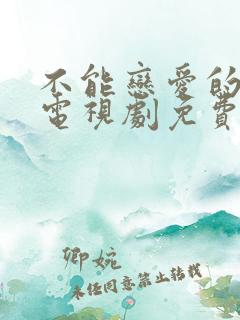 不能戀愛的
電視劇免費
卿婉
未经同意禁止转载